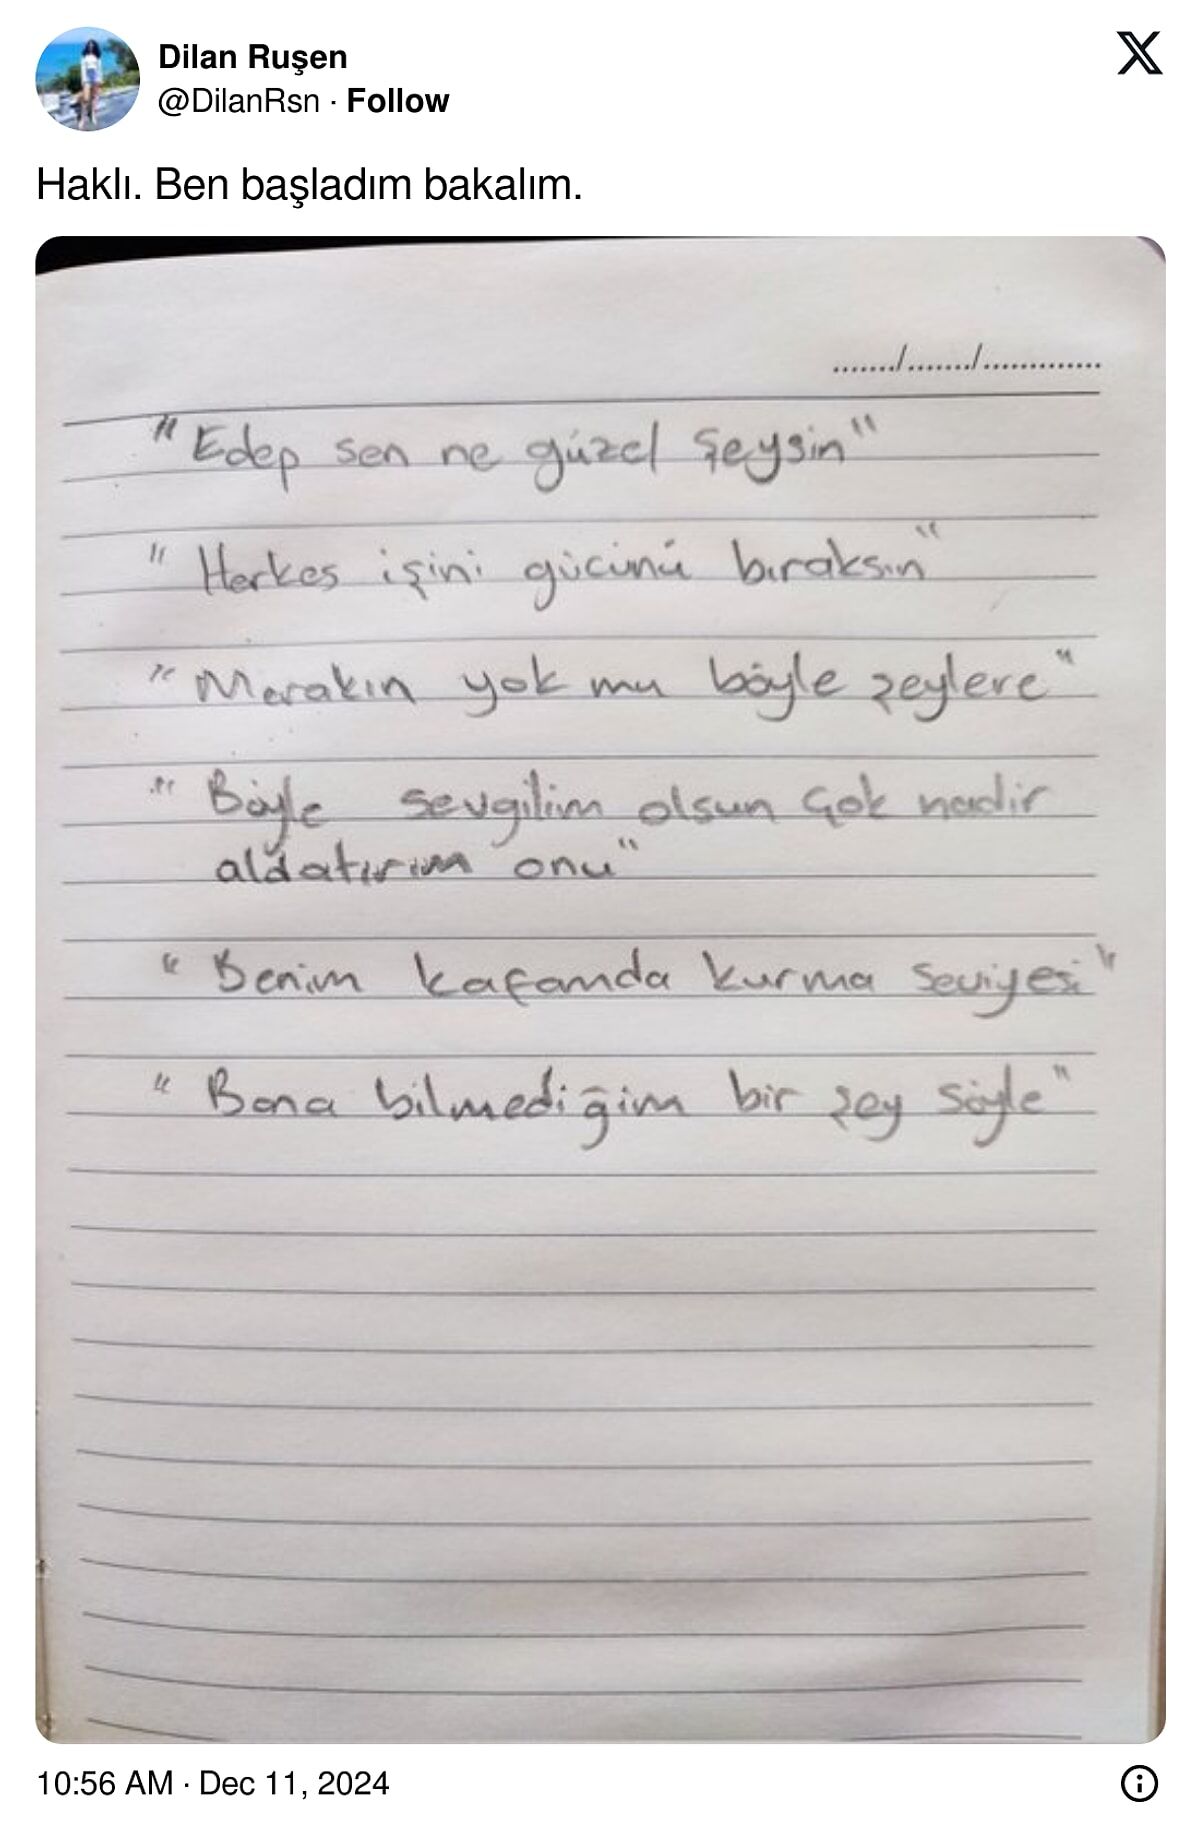 Dilan Ruşen
@DilanRsn · Follow
Haklı. Ben başladım bakalım.
......./......./.............
"Edep sen ne güzel şeysin"
"Herkes işini gücünü bıraksın"
"Merakın yok mu böyle şeylere"
"Böyle sevgilim olsun çok nadir
aldatırım onu"
"Benim kafamda kurma seviyesi"
"Bana bilmediğim bir şey söyle"
10:56 AM · Dec 11, 2024